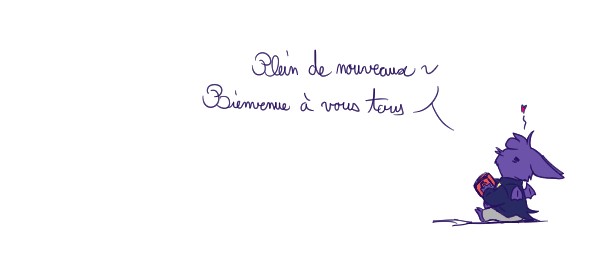 Plein de nouveaux ~
Bienvenue à vous tous